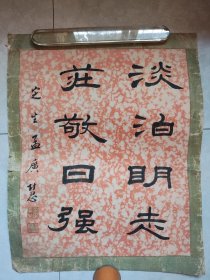 淡泊明志
莊敬日强
定生孟广慧